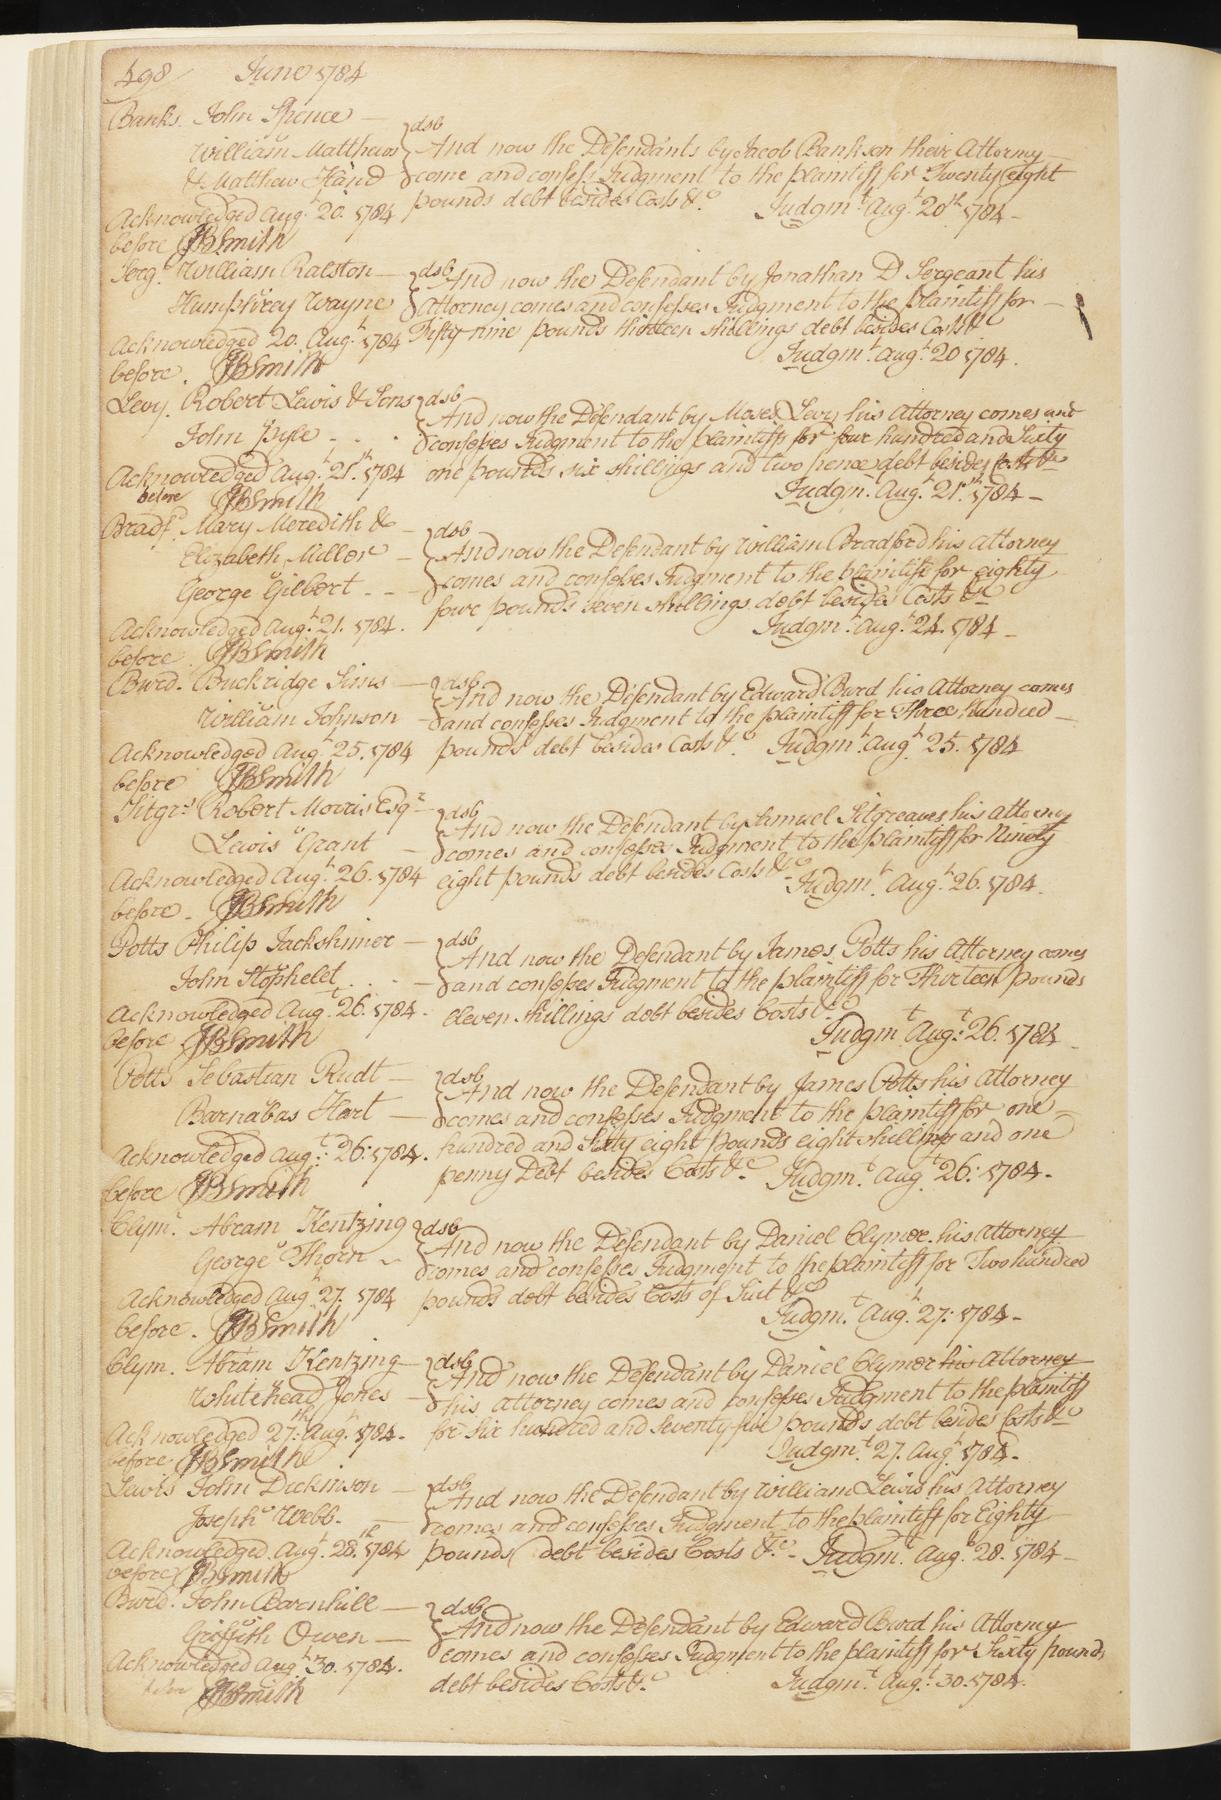 498 June 1784
Banks. John Spence —
v
William Matthews
& Matthew Hand
Acknowledged Aug.t 20. 1784
before JBSmith
dsb
And now the Defendants by Jacob Bankson their Attorney
come and confess Judgment to the plaintiff for Twenty eight
pounds debt besides Costs &c. Judgm.t Aug.t 20th 1784 —
Serg.t William Ralston —
v
Humphrey Wayne
Acknowledged 20. Aug.t 1784
before. JBSmith
dsb
And now the Defendant by Jonathan D Sergeant his
Attorney comes and confesses Judgment to the plaintiff for —
Fifty nine pounds thirteen shillings debt besides Costs &c
Judgm.t Aug.t 20 1784.
Levy. Robert Lewis & Sons
v
John Pyle - . .
Acknowledged Aug.t 21st. 1784
before JBSmith
dsb
And now the Defendant by Moses Levy his Attorney comes and
confesses Judgment to the plaintiffs for four hundred and Sixty
one pounds six shillings and two pence debt besides Costs &c
Judgm. Aug.t 21st. 1784 —
Bradf.d Mary Meredith & —
Elizabeth Miller —
v
George Gilbert - - —
Acknowledged Aug.t 21. 1784.
before. JBSmith
dsb
And now the Defendant by William Bradford his Attorney
comes and confesses Judgment to the plaintiff for eighty
four pounds seven shillings debt besides Costs &c
Judgm.t Aug.t 24. 1784 —
Burd. Buckridge Sims —
v
William Johnson —
Acknowledged Aug.t 25. 1784
before JBSmith
dsb
And now the Defendant by Edward Burd his Attorney comes
and confesses Judgment to the plaintiff for Three hundred —
pounds debt besides Costs &c. Judgm.t Aug.t 25. 1784
Sitgrs Robert Morris Esqr —
v
Lewis Grant —
Acknowledged Aug.t 26. 1784
before. JBSmith
dsb
And now the Defendant by Samuel Sitgreaves his Attorney
comes and confesses Judgment to the plaintiff for Ninety
eight pounds debt besides Costs &c. Judgm.t Aug.t 26. 1784.
Potts Philip Jackshimer —
v
John Stophelet . . . —
Acknowledged Aug.t 26. 1784.
before JBSmith
dsb
And now the Defendant by James Potts his Attorney comes
and confesses Judgment to the plaintiff for Thirteen pounds
eleven shillings debt besides Costs &c
Judgm.t Aug.t 26. 1784
Potts Sebastian Rudt —
v
Barnabas Hart —
Acknowledged Aug.t 26: 1784.
before JBSmith
dsb
And now the Defendant by James Potts his Attorney
comes and confesses Judgment to the plaintiff for one —
hundred and Sixty eight pounds eight shillings and one
penny Debt besides Costs &c. Judgm.t Aug.t 26: 1784.
Clym.r Abram Kentzing
v
George Thorn —
Acknowledged Aug.t 27. 1784
before. JBSmith
dsb
And now the Defendant by Daniel Clymer. his Attorney
comes and confesses Judgment to the plaintiff for Two hundred
pounds debt besides Costs of Suit &c
Judgm.t Aug.t 27: 1784 —
Clym. Abram Kentzing —
v
Whitehead Jones —
Acknowledged 27th. Aug.t 1784.
before JBSmith
dsb
And now the Defendant by Daniel Clymer his Attorney
his attorney comes and confesses Judgment to the plaintiff
for six hundred and seventy five pounds debt besides Costs &c
Judgm.t 27. Aug.t 1784.
Lewis John Dickinson —
v
Joseph Webb. —
Acknowledged. Aug.t 28th. 1784
before JBSmith
dsb
And now the Defendant by William Lewis his Attorney
comes and confesses Judgment to the plaintiff for Eighty —
pounds debt besides Costs &c. - Judgm.t Aug.t 28. 1784 —
Burd. John Barnhill —
v
Griffith Owen —
Acknowledged Aug.t 30. 1784.
before JBSmith
dsb
And now the Defendant by Edward Burd his Attorney
comes and confesses Judgment to the plaintiff for Sixty pounds
debt besides Costs &c. Judgm.t Aug.t 30. 1784.